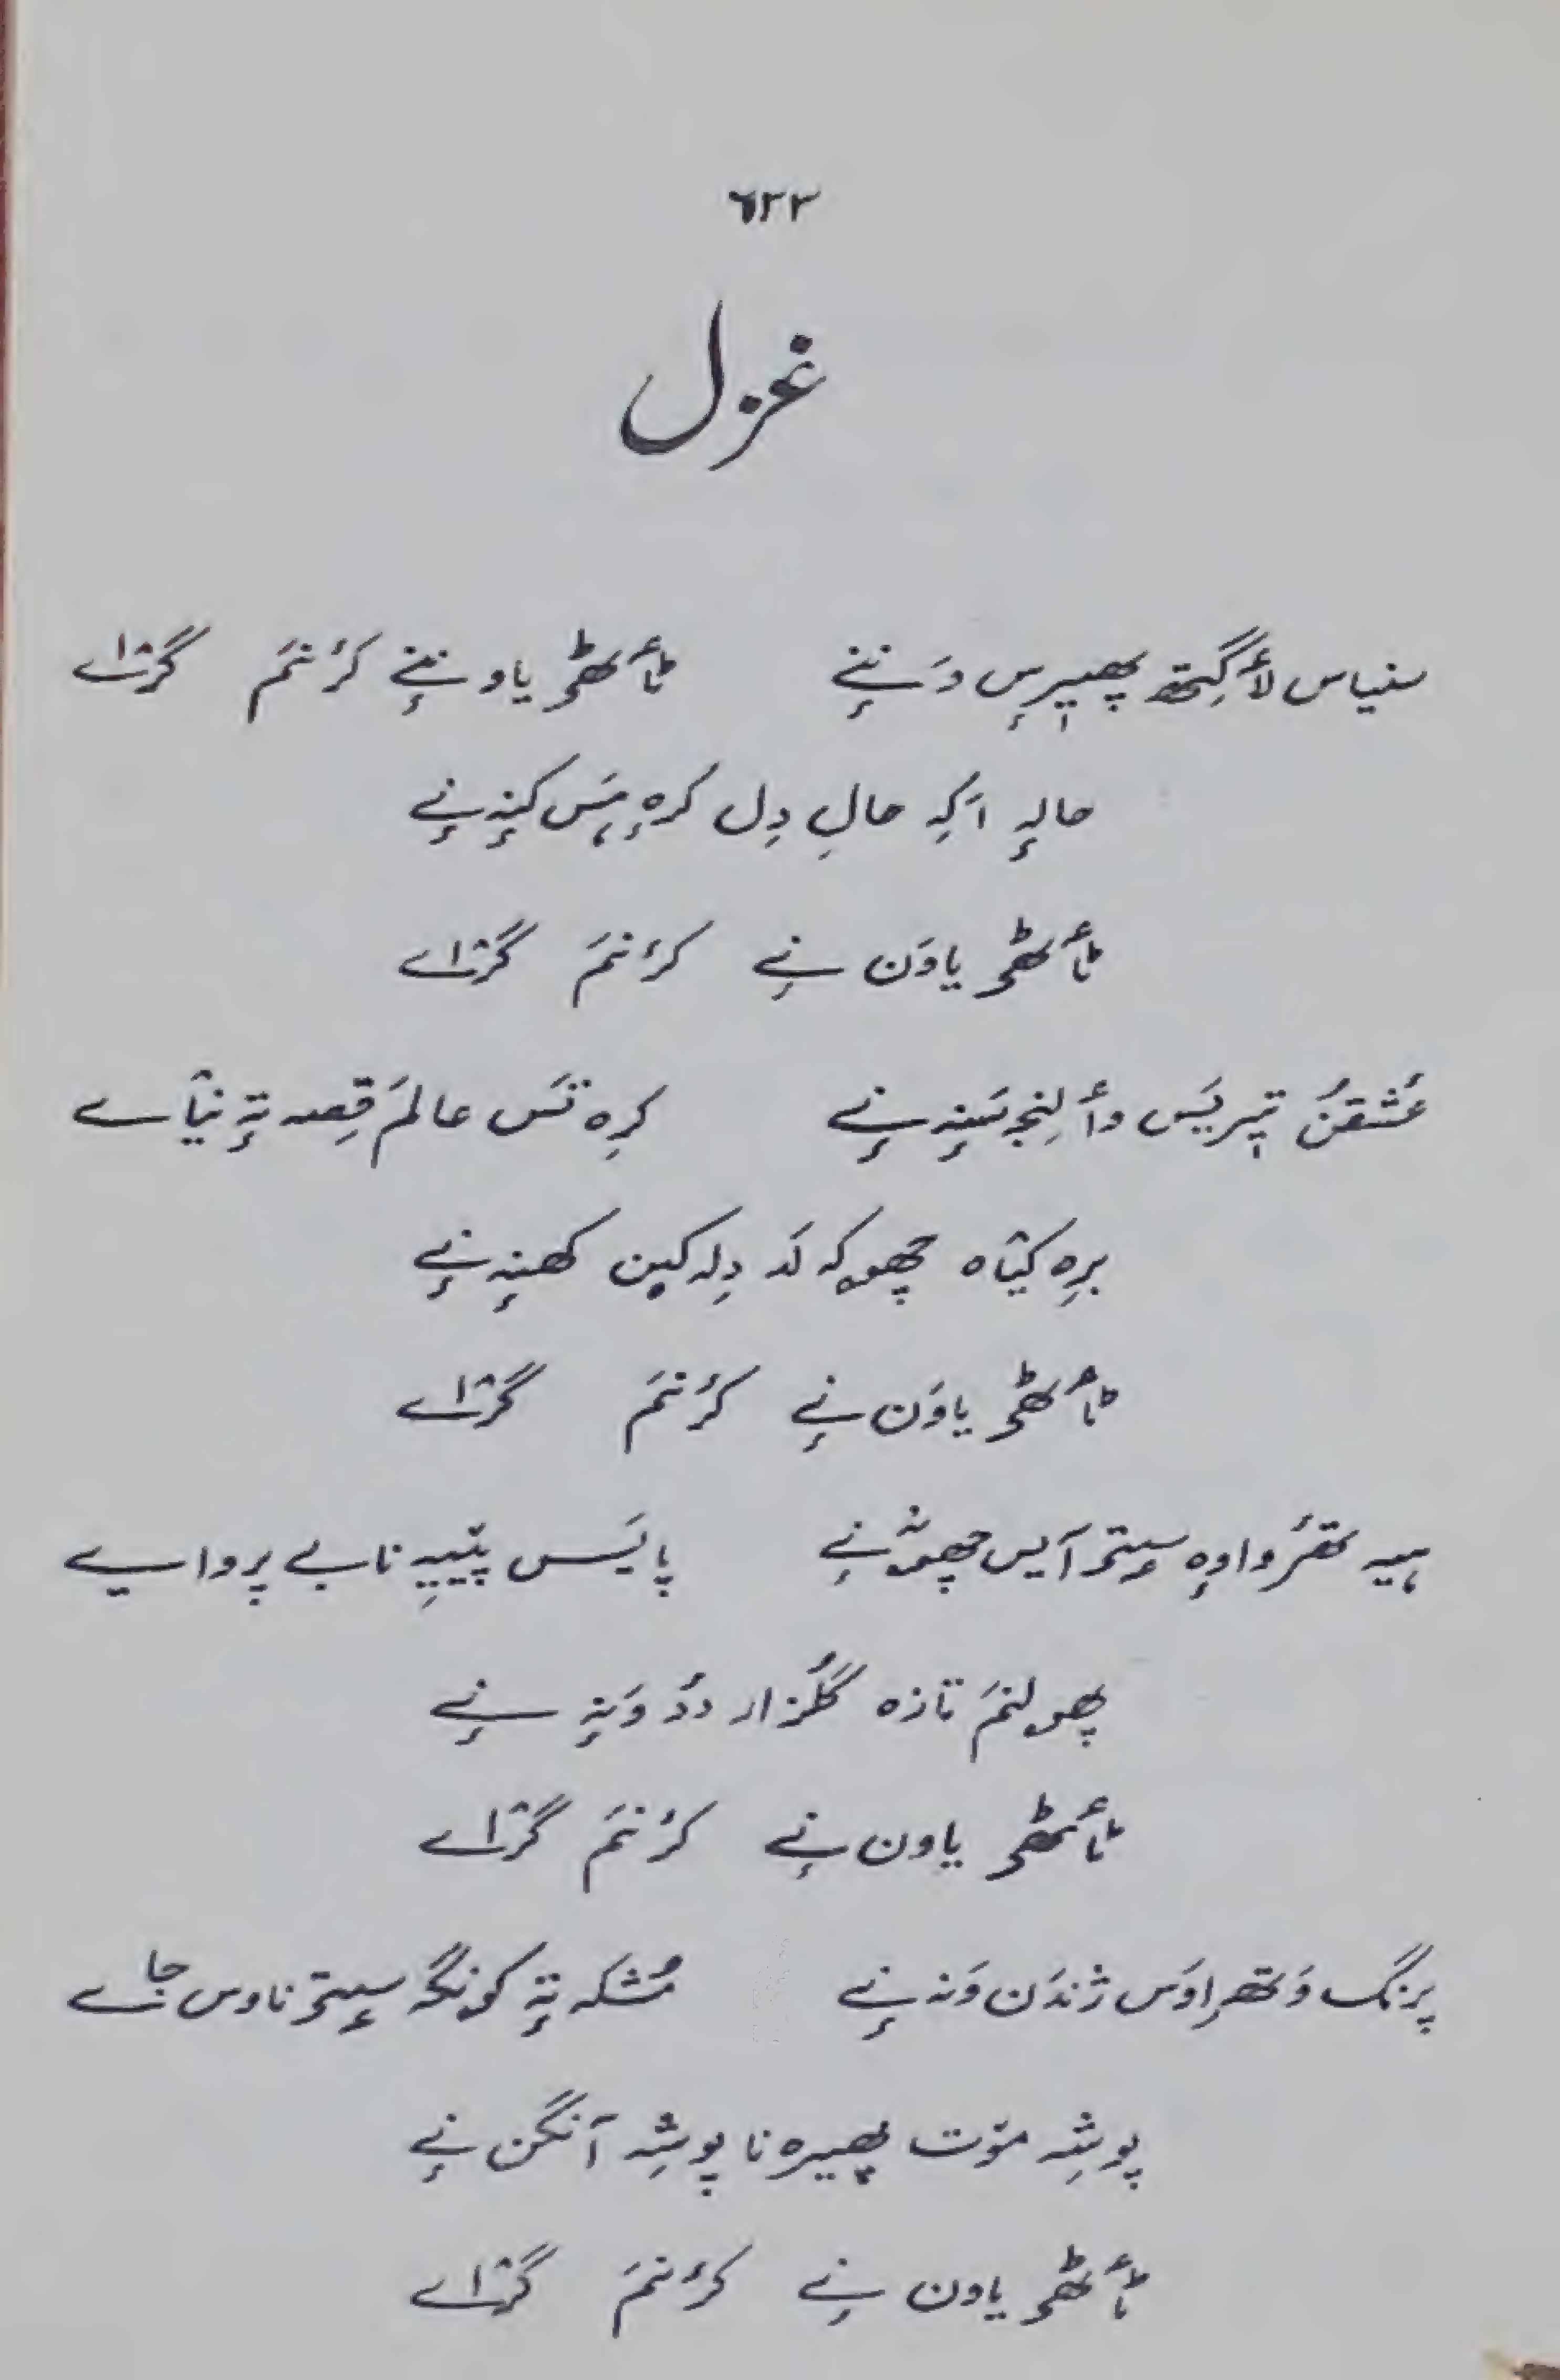 ٦٢٣
غزل
سنیاس لٲگِتھ پھیرِس وَننٕے ٹٲٹھی یاوننٕے کرٔنمَ گژاے
حالہٕ اَکہِ حالِ دِل کرٕہ ہَس کَنہٕ نٕے
ٹٲٹھی یاوَن نٕے کرٔنمَ گژاے
عُشقنُ تیریَس وٲلِنجہِ سَنہٕ نٕے کرِہ تَس عالمَ قِصہ تہٕ نیٛاے
برِہ کیٛاہ چھوکہ لَد دِلہ کین کھنہٕ نٕے
ٹٲٹھی یاوَن نٕے کرٔنمَ گژاے
ہیہ تھرٔ واوٕہ سٟتی آیس چھونٕے پایَس پیٚیہِ نا بے پرواے
پھولنمَ تازہ گلُزار ددُ وَنہٕ نٕے
ٹٲٹھی یاون نٕے کرٔنمَ گژاے
پرنگ وَتھراوَس ژندَن وَنہ نٕے مُشکہ تہٕ کونگہ سٟتی ناوس جاے
پوشہِ موٚت پھیرہ نا پوشہِ آنگن نٕے
ٹٲٹھی یاون نٕے کرٔنمَ گژاے